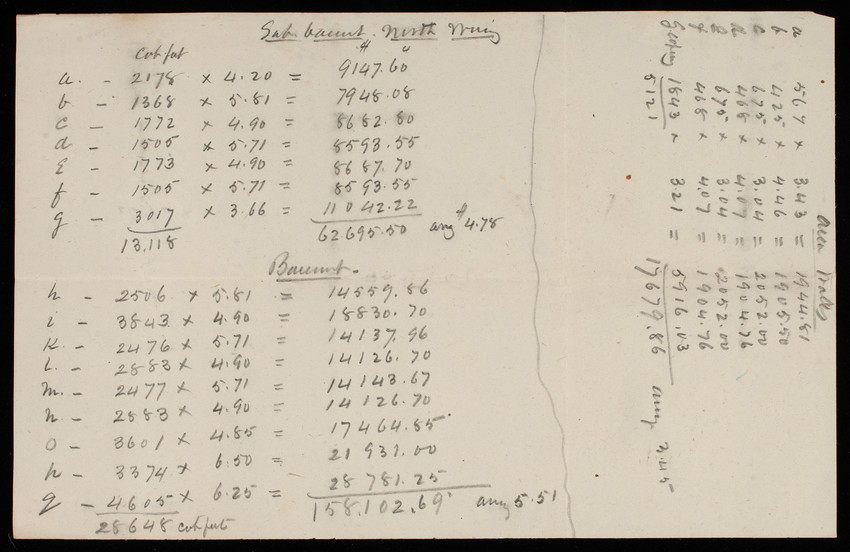 Sub. basemt. North Wing
cub feet $ c
a. – 2178 x 4.20 = 9147.60
b – 1368 x 5.81 = 7948.08
c – 1772 x 4.90 = 8682.80
d – 1505 x 5.71 = 8593.55
E – 1773 x 4.90 = 8687.70
f – 1505 x 5.71 = 8593.55
g – 3017 x 3.66 = 11042.22
13,118 62695.50 avrg $4.78
Basemt.
h – 2506 x 5.81 = 14559.86
i – 3843 x 4.90 = 18830.70
K. – 2476 x 5.71 = 14137.96
L. – 2883 x 4.90 = 14126.70
m. – 2477 x 5.71 = 14143.67
n – 2883 x 4.90 = 14126.70
O – 3601 x 4.85 = 17464.85
p 3374 x 6.50 = 21931.00
q – 4605 x 6.25 = 28781.25
28648 cub feet 158,102.69 avrg 5.51
Area Walls
a 567 x 3.43 = 1944.81
b 425 x 4.46 = 1905.50
c 675 x 3.04 = 2052.00
d 468 x 4.07 = 1904.76
e 675 x 3.04 = 2052.00
f 468 x 4.07 = 1904.76
1843 x 3.21 = 5916.03
5121 17679.86 avrg 3.45